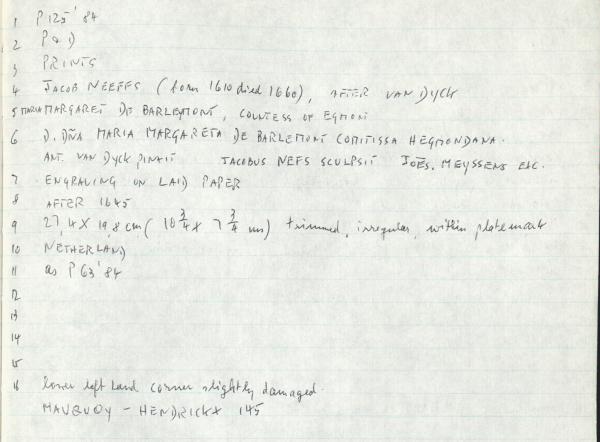 1 P 125' 84
2 P & D
3 PRINTS
4 JACOB NEEFFS (born 1610 died 1660), AFTER VAN DYCK
5 MARIA MARGARET DE BARLEMONT, COUNTESS OF EGMONT
6 D. DÑA MARIA MARGARETA DE BARLEMONT COMITISSA HEGMONDANA.
ANT. VAN DYCK PINXIT JACOBUS NEFS SCULPSIT JOẼS. MEYSSENS EXC.
7 ENGRAVING ON LAID PAPER
8 AFTER 1645
9 27,4 X 19,8 cm ( 10 3/4 x 7 3/4 ins) trimmed, irregular, within platemark
10 NETHERLAND
11 as P 63' 84
12
13
14
15
16 lower left hand corner slightly damaged.
MAUQUOY - HENDRICKX 145